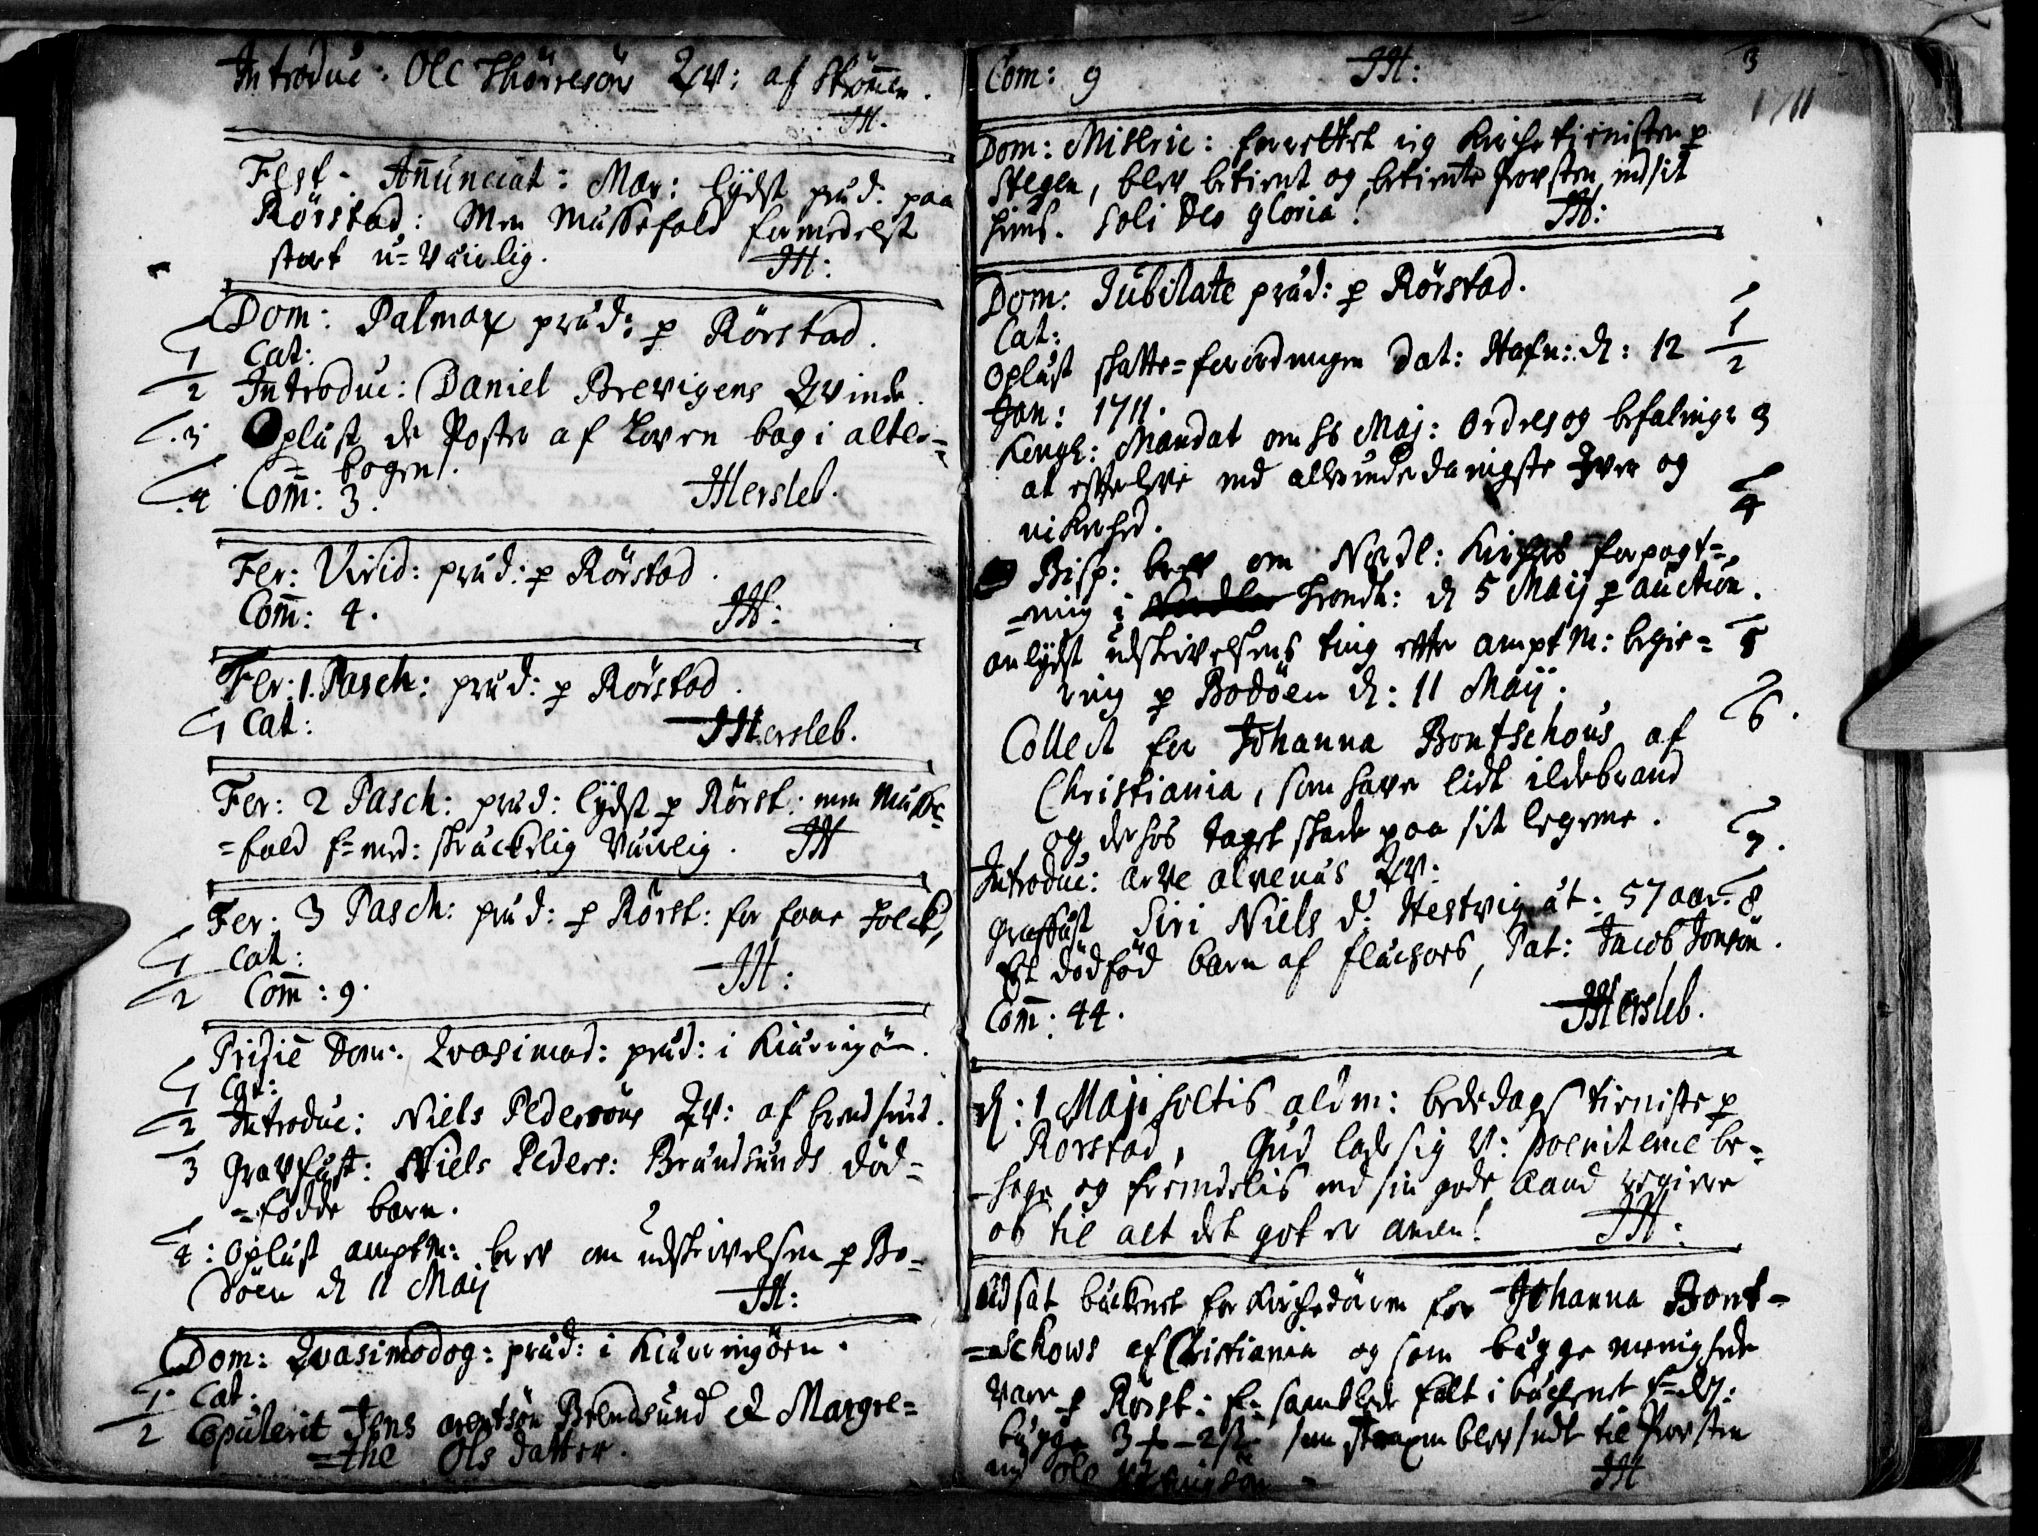 Introduc: Ole Thörresöns Qv: af Strömen.
JH.
Fest. Añunciat: Mar: lydst præd: paa
Rörstad: Men Mussefald formedelst
sterk u=Vairlig. JH:
Dom: Palmar præd: p Rörstad.
1 Cat:
2 Introduc: Daniel Brevigens Qvinde.
3 Oplüst de Poster af Loven bag i alter=
=bogen.
4 Com̄: 3. JHersleb.
Fer: Virid: præd: p Rörstad.
Com̄: 4. JH:
Fer: 1. Pasch: præd: p Rörstad.
1 Cat: JHersleb.
Fer: 2 Pasch: præd: lydst p Rörst: men Musse=
=fald f=med: skræckelig Vairlig. JH
Fer: 3 Pasch: præd: p Rörst: for faae Folck,
1 Cat:
2 Com̄: 9. JH:
Pridie Dom: Qvasimod: præd: i Kiærringöen.
1 Cat:
2 Introduc: Niels Pedersöns Qv: af brendsund.
3 Gravfæst: Niels Peders: Brundsunds död=
=födde barn.
4: Oplüst amptm: brev om udskrivelsen p Bo=
döen d 11 Maij JH:
Dom: Qvasimodog: præd: i Kiærringöen.
1 Cat.
2 Copulerit Jens arentsön Brendsund & Margre=
=the Ols datter.
Com: 9 JH: 3
1711
Dom: Miseric: forrettet iig Kirke tienisten p
Stegen, blev betient og betiente Provsten, ved sit
huus. Soli Deo gloria! JH:
Dom: Jubilate præd: p Rörstad.
Cat: 1
Oplüst skatte=forordningen Dat: Hafn: d: 12 2
Jan: 1711.
Kongl: Mandat om hs Maj: Ordres og befalinger 3
at efterleve med allerunderdanigste Iver og
nidkierhed. 4
Bisp: brev om Nordl: Kirkers forpagt=
=ning i Trondh: d 5 Maij p auction.
anlydst udskrivelsens ting efter amptm: begie= 5
ring p Bodöen d: 11 Maij.
Collect for Johanna Bontschous af 6.
Christiania, som haver lidt ildebrand
og der hos taget skade paa sit legeme.
Introduc: Arve alvenæs Qv: 7.
Grafæst Siri Niels d: Hestvig æt: 57 aar. 8
Et dödföd barn af flachsös, Pat: Jacob Jonsön.
Com̄: 44. JHersleb.
d: 1 Maji holtis aldm: bededags tieniste p
Rorstad, Gud lade sig V: poenitence be=
=hage og fremdelis med sin gode Aand regiere
os til alt det got er amen! JH:
Udsat bückenet for Kirkedören for Johanna Bont=
=schows af Christiania og som begge menigheder
vare p Rörst: f= samblede falt i bückenet f=
begge 3 som blev sendt til Provsten
med Ole JH